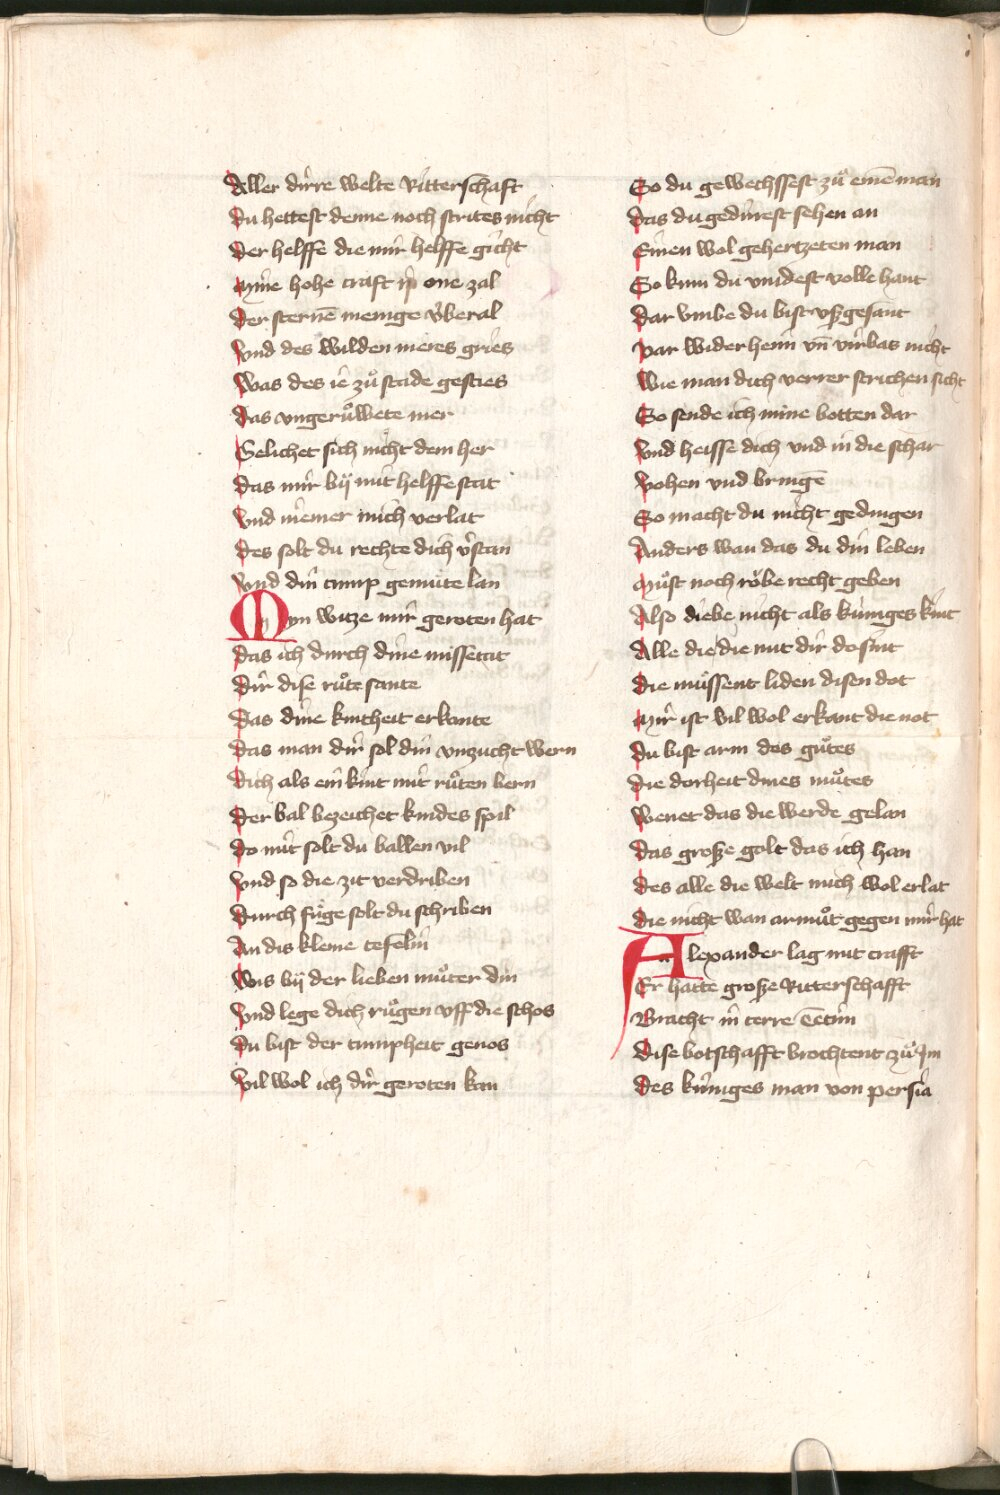 Aller dirre welte Ritterschaft
Du hettest denne noch strites nicht
Der helffe die mir helffe gicht
Mine hohe craft ist one zal
Der sternē menige v̈beral
Vnd des wilden meres gries
Was des ie zuͦ stade gesties
Das vngeruͦwete mer
Gelichet sich nicht dem her
Das mir bÿ mit helffe stat
Vnd niemer mich verlat
Des solt du rechte dich v̉stan
Vnd din tump gemuͤte lan
Myn witze mir geroten hat
Das ich durch dine missetat
Dir dise ruͦte sante
Das dine kintheit erkante
Das man dir sol din vnzucht wern
Dich als ein kint mit ruͦten bern
Der bal bezeichet kindes spil
Do mit solt du ballen vil
Vnd so die zit verdriben
Durch fuͦge solt du schriben
An dis kleine tefelin
Wis bÿ der lieben muͦter din
Vnd lege dich ruͦgen vff die schos
Du bist der tumpheit genos
Vil wol ich dir geroten kan
So du gewechssest zuͦ eine man
Das du gedinest sehen an
Einen wol gehertzeten man
So kum du vindest volle hant
Dar vmbe du bist vsgesant
Var wider heim vn̄ vúrbas nicht
Wie man dich verrer strichen sicht
So sende ich mine botten dar
Vnd heisse dich vnd in die schar
Vohen vnd bringē
So macht du nicht gedingen
Anders wan das du din leben
Muͦst noch roͤbe recht geben
Also diebe nicht als kúniges kint
Alle die die mit dir do sint
Die muͤssent liden disen dot
Mir ist vil wol erkant die not
Du bist arm des guͦtes
Die dorheit dines muͦtes
Wenet das die werde gelan
Das große golt das ich han
Des alle die welt mich wol erlat
Die nicht wan armuͦt gegen mir hat
Alexander lag mit crafft
Er hatte große Ritterschafft
Bracht in terre Cetim
Dise botschafft brochtent zuͦ Im
Des kúniges man von persia